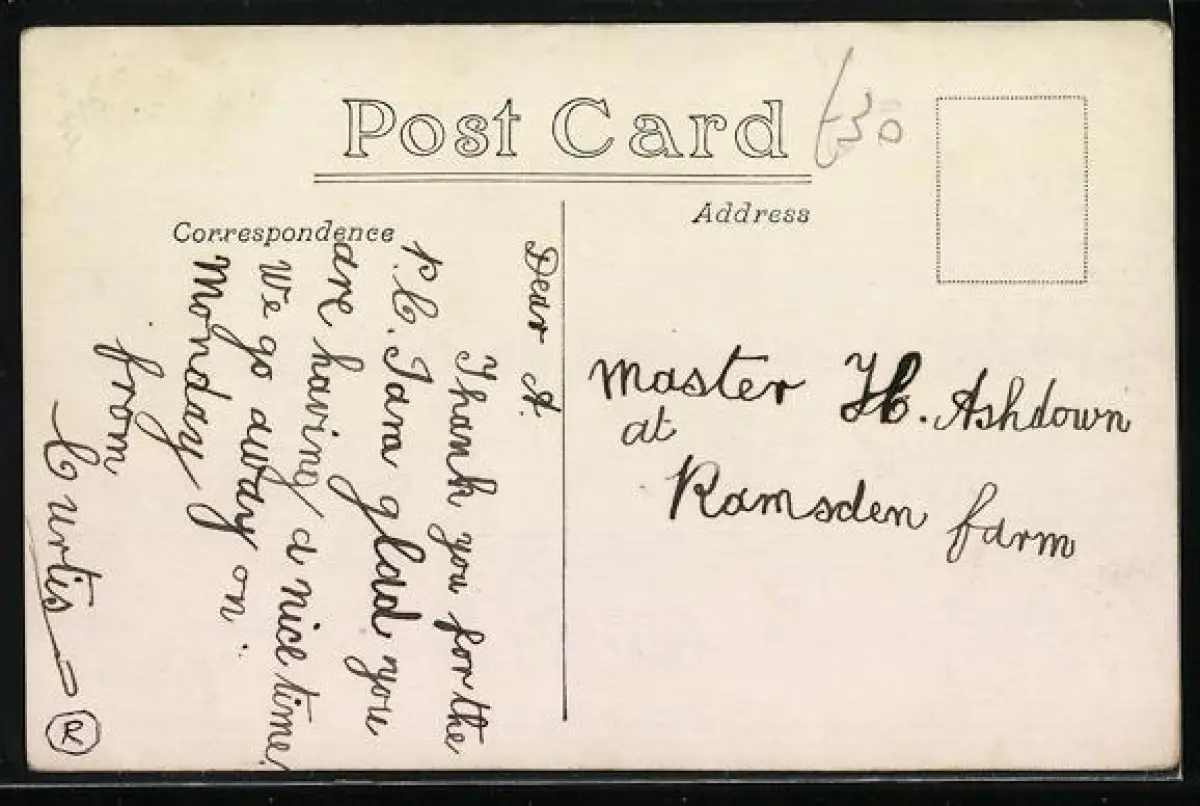 Post Card
£30
Correspondence
Address
Dear A.
Thank you for the
P.C. I am glad you
are having a nice time.
We go away on.
Monday
from
Curtis
R
Master H. Ashdown
at
Ramsden farm